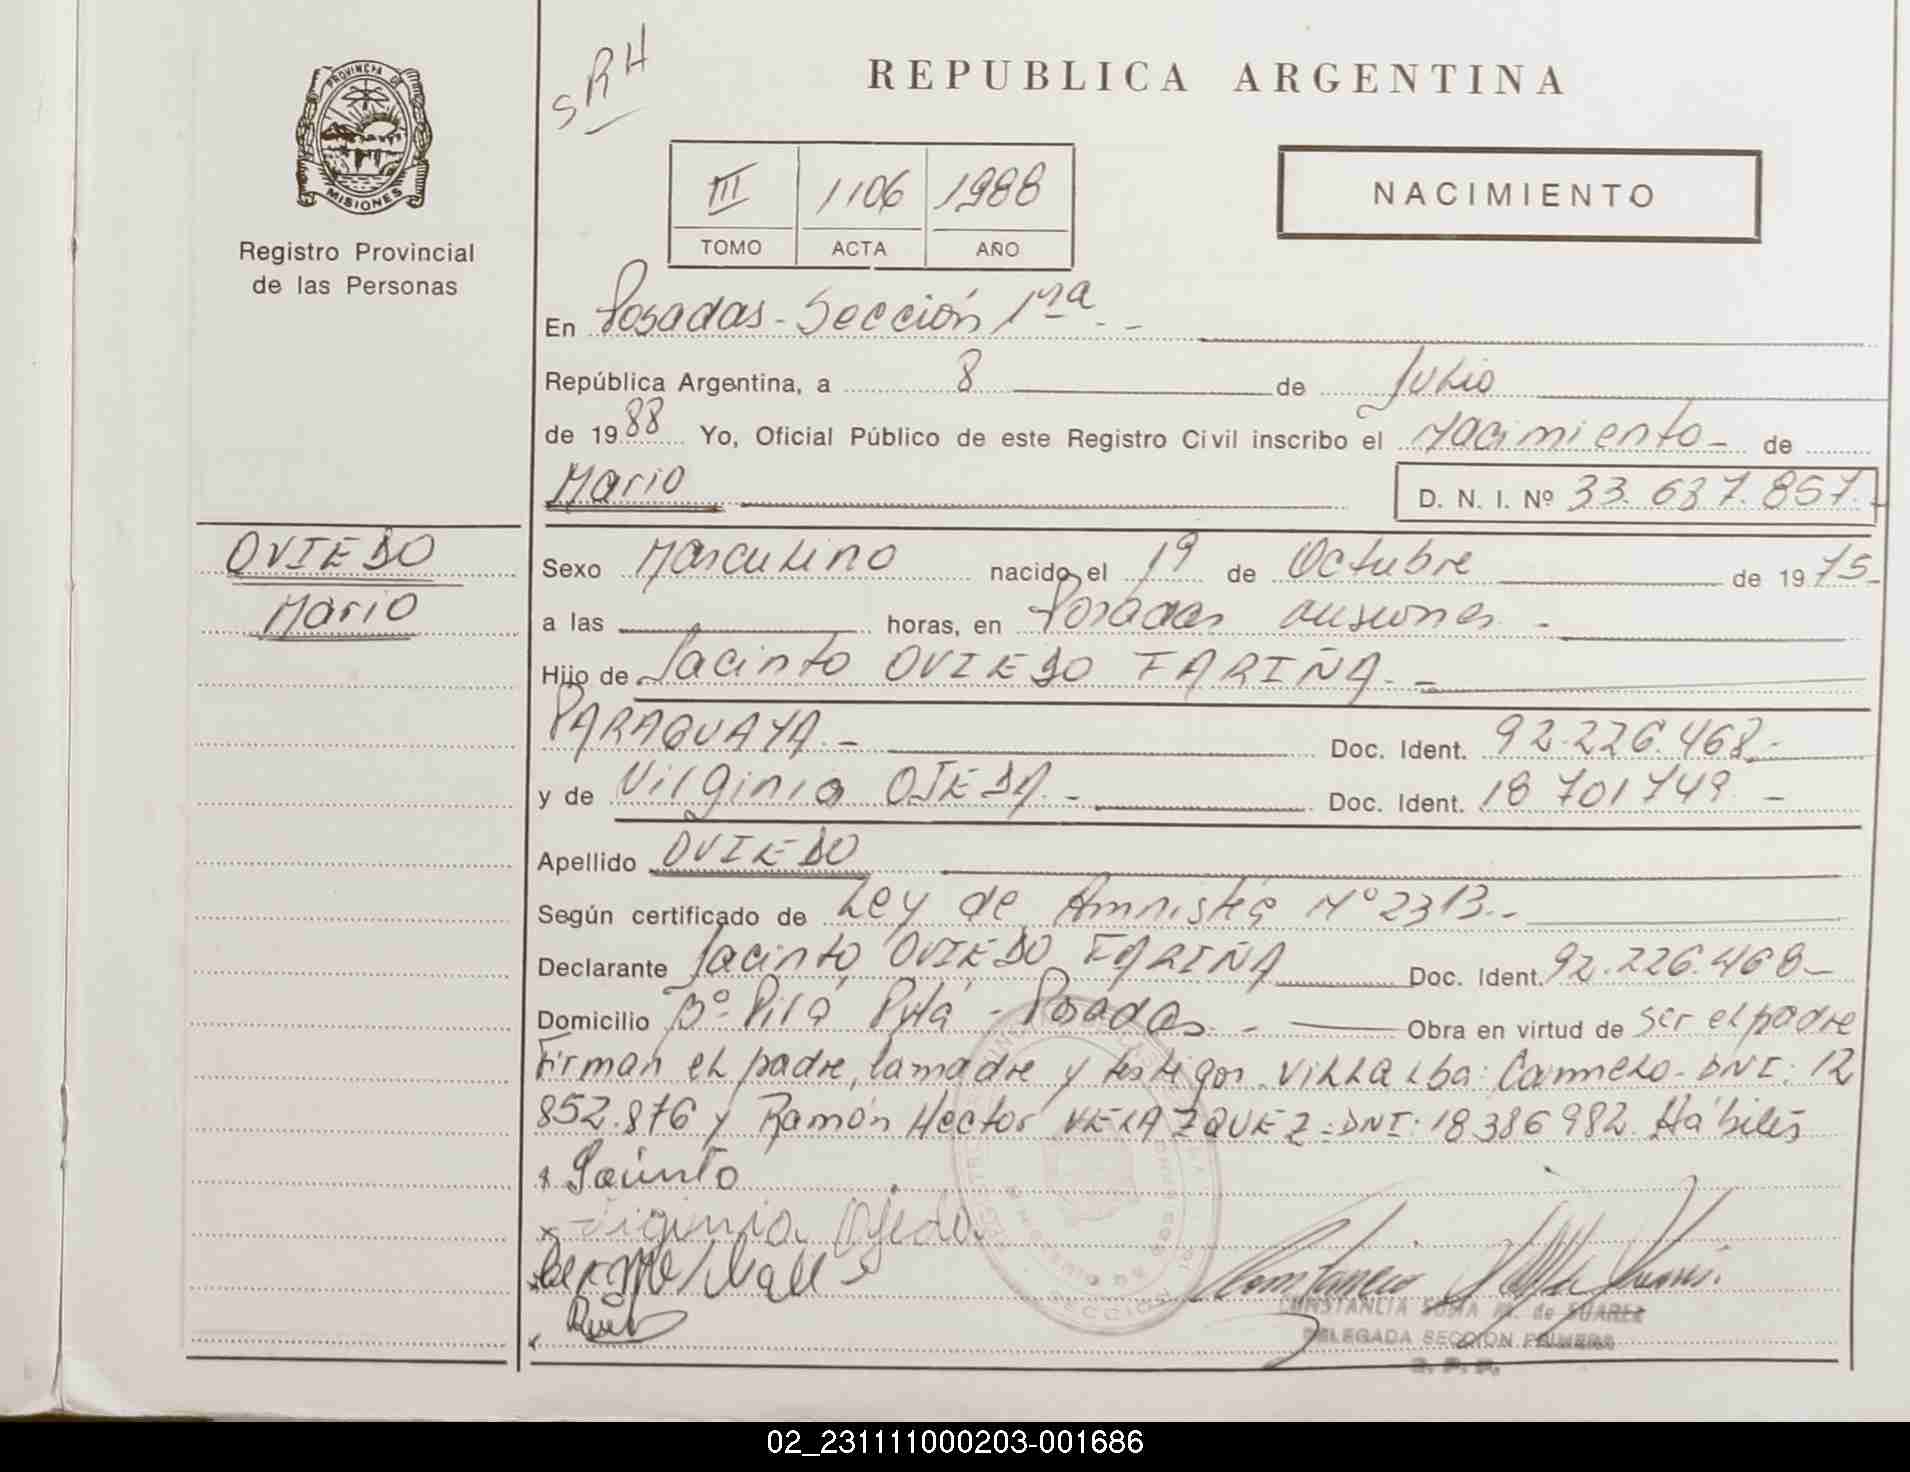 SRH
REPUBLICA ARGENTINA
PROVINCIA DE
MISIONES
Registro Provincial
de las Personas
III 1106 1988
TOMO ACTA AÑO
NACIMIENTO
En Posadas - Sección 1ra - -
República Argentina, a 8 de Julio
de 1988 Yo, Oficial Público de este Registro Civil inscribo el Nacimiento - de
Mario D. N. I. Nº 33.637.857.-
OVIEDO
Mario
Sexo Masculino nacido el 19 de Octubre de 1975-
a las horas, en Posadas Misiones -
Hijo de Jacinto OVIEDO FARIÑA. -
PARAGUAYA. - Doc. Ident. 92.226.468.-
y de Virginia OJEDA - Doc. Ident. 18 701749 -
Apellido OVIEDO
Según certificado de Ley de Amnistía Nº 2313.-
Declarante Jacinto OVIEDO FARIÑA Doc. Ident. 92.226.468-
Domicilio Bº Pirá Pytá - Posadas - Obra en virtud de ser el padre
Firman el padre, la madre y testigos. Villalba: Carmelo - DNI: 12
852.876 y Ramón Hector VELAZQUEZ - DNI: 18386982. Hábiles
x Jacinto
x Virginia Ojeda
CONSTANCIA SOFIA M. de SUAREZ
DELEGADA SECCION PRIMERA
R. P. P.
SECCION
02_231111000203-001686